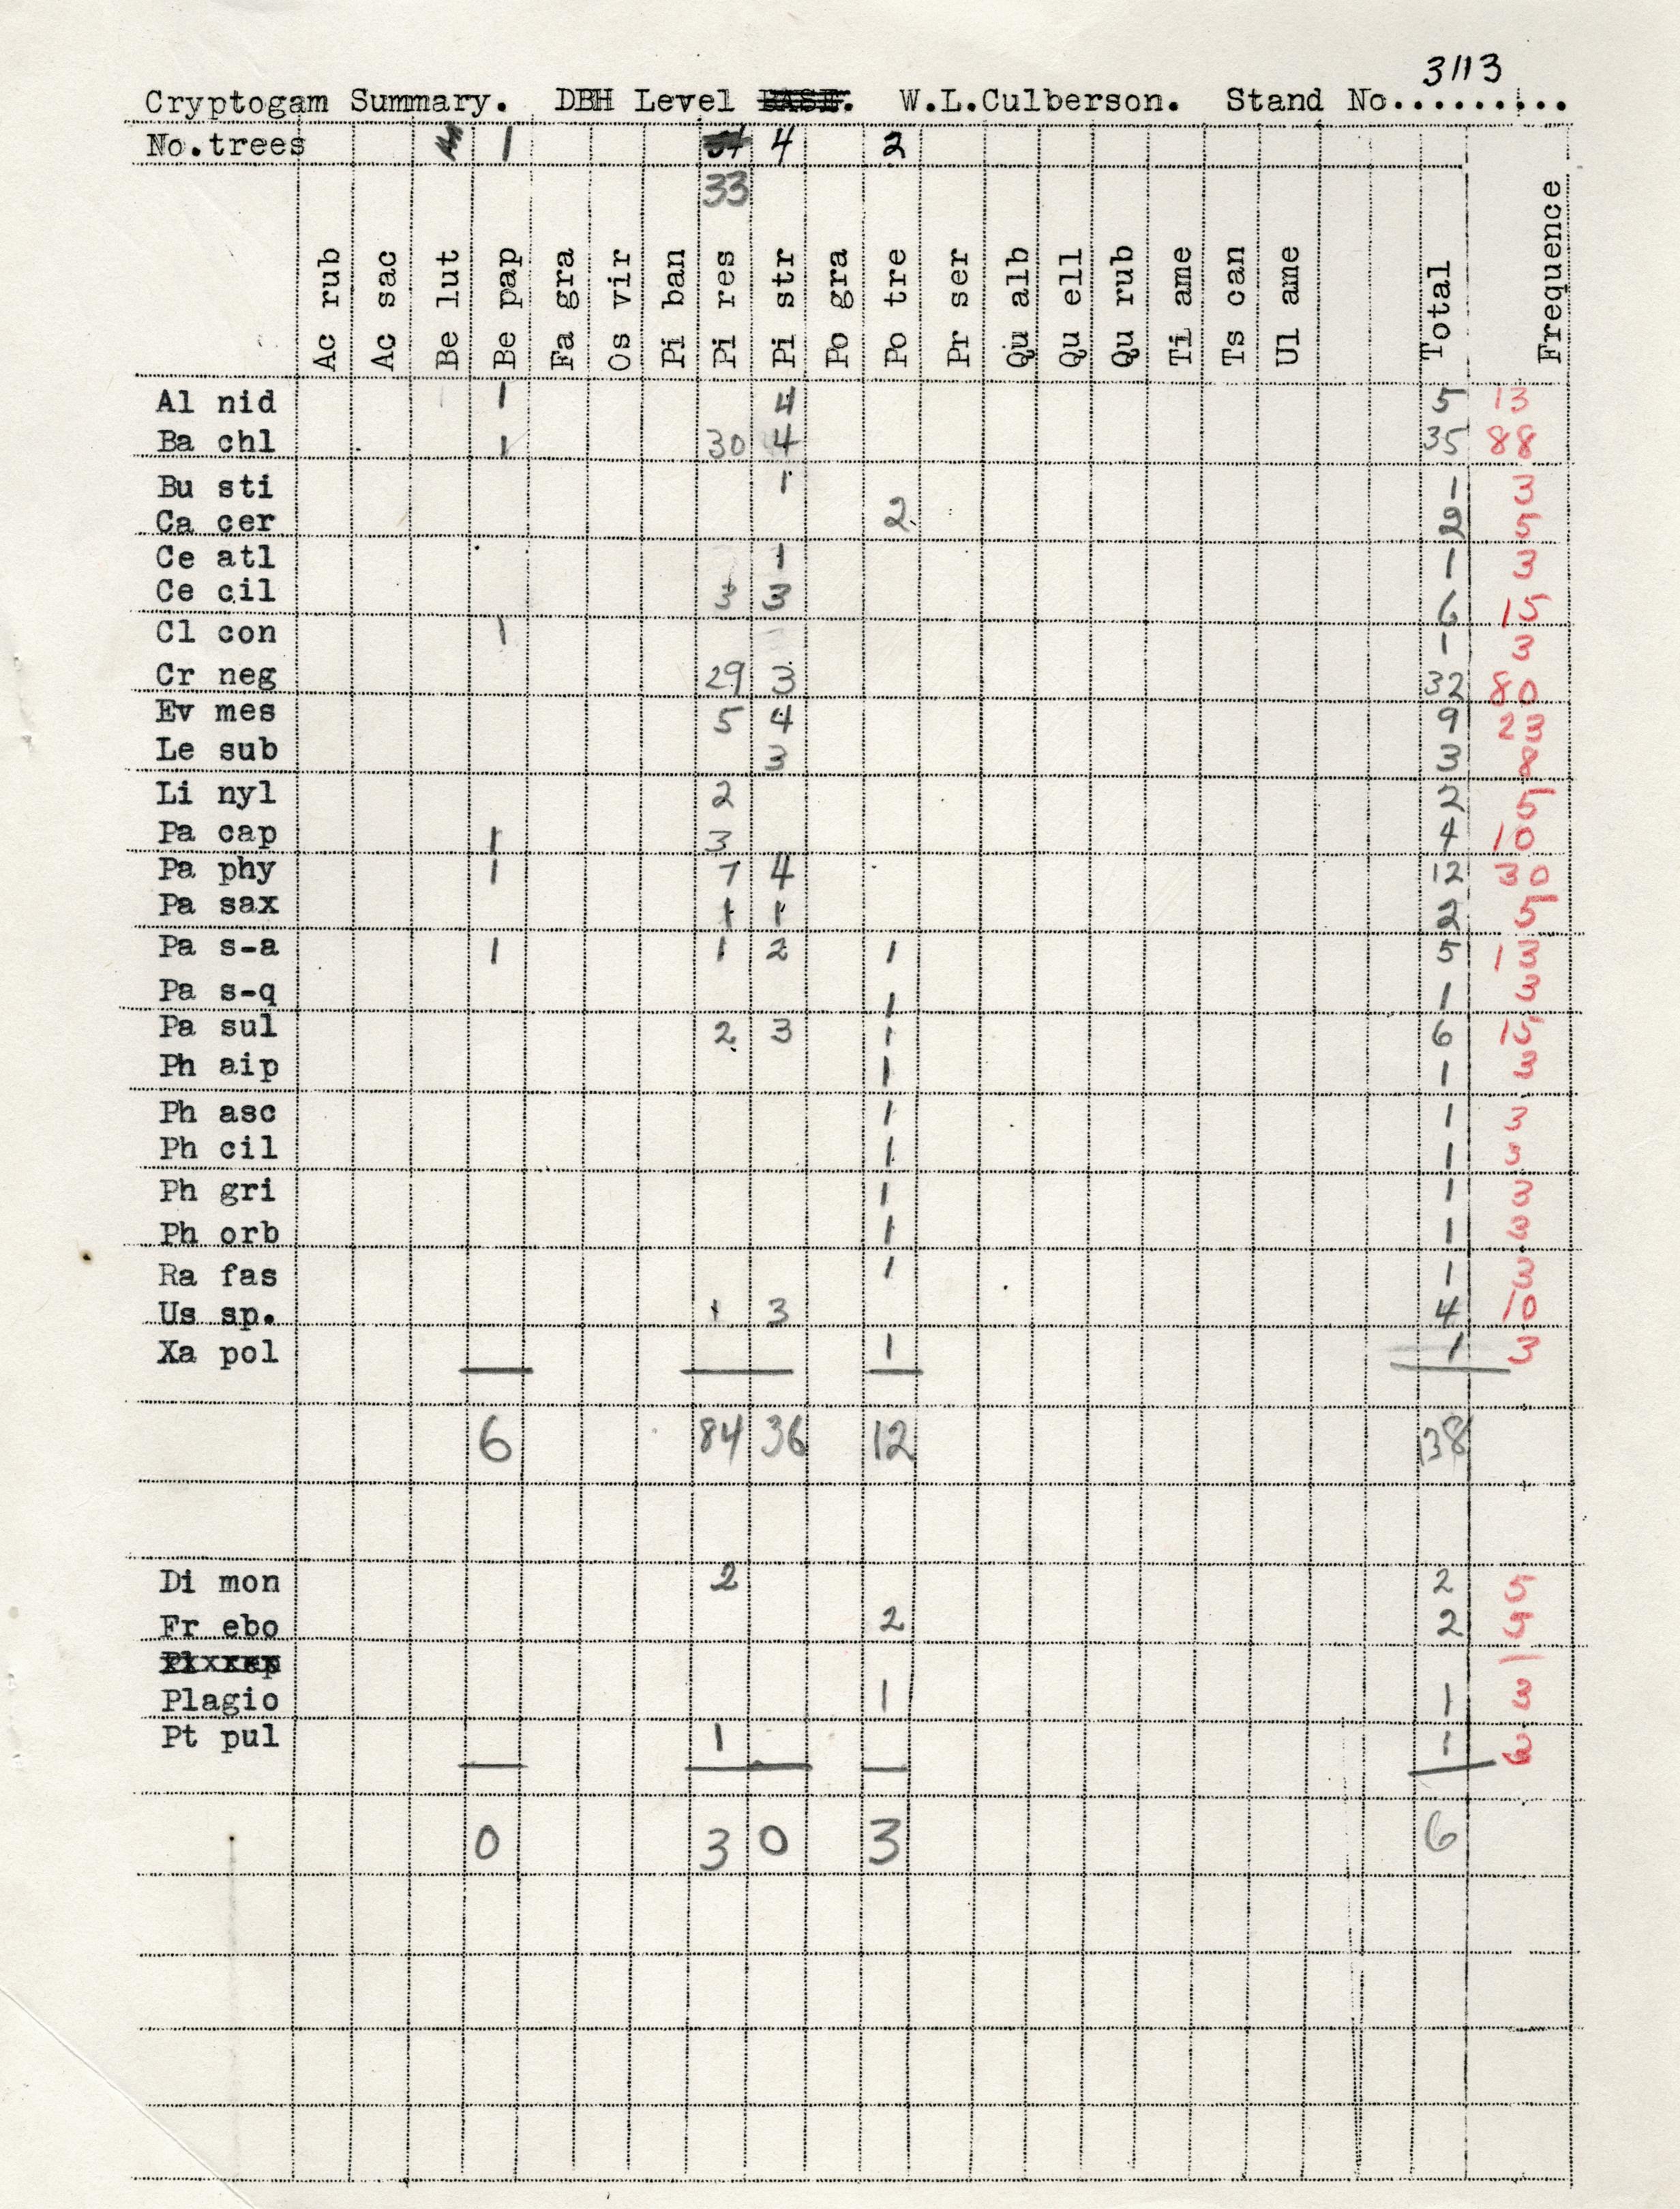 3113
Cryptogam Summary. DBH Level BASE. W.L.Culberson. Stand No.........
No.trees 1 4 2
33
Ac rub Ac sac Be lut Be pap Fa gra Os vir Pi ban Pi res Pi str Po gra Po tre Pr ser Qu alb Qu ell Qu rub Ti ame Ts can Ul ame Total Frequence
Al nid 1 4 5 13
Ba chl 1 30 4 35 88
Bu sti 1 1 3
Ca cer 2 2 5
Ce atl 1 1 3
Ce cil 3 3 6 15
Cl con 1 1 3
Cr neg 29 3 32 80
Ev mes 5 4 9 23
Le sub 3 3 8
Li nyl 2 2 5
Pa cap 1 3 4 10
Pa phy 1 7 4 12 30
Pa sax 1 1 2 5
Pa s-a 1 1 2 1 5 13
Pa s-q 1 1 3
Pa sul 2 3 1 6 15
Ph aip 1 1 3
Ph asc 1 1 3
Ph cil 1 1 3
Ph gri 1 1 3
Ph orb 1 1 3
Ra fas 1 1 3
Us sp. 1 3 4 10
Xa pol 1 1 3
6 84 36 12 138
Di mon 2 2 5
Fr ebo 2 2 5
Plagio 1 1 3
Pt pul 1 1 3
0 3 0 3 6